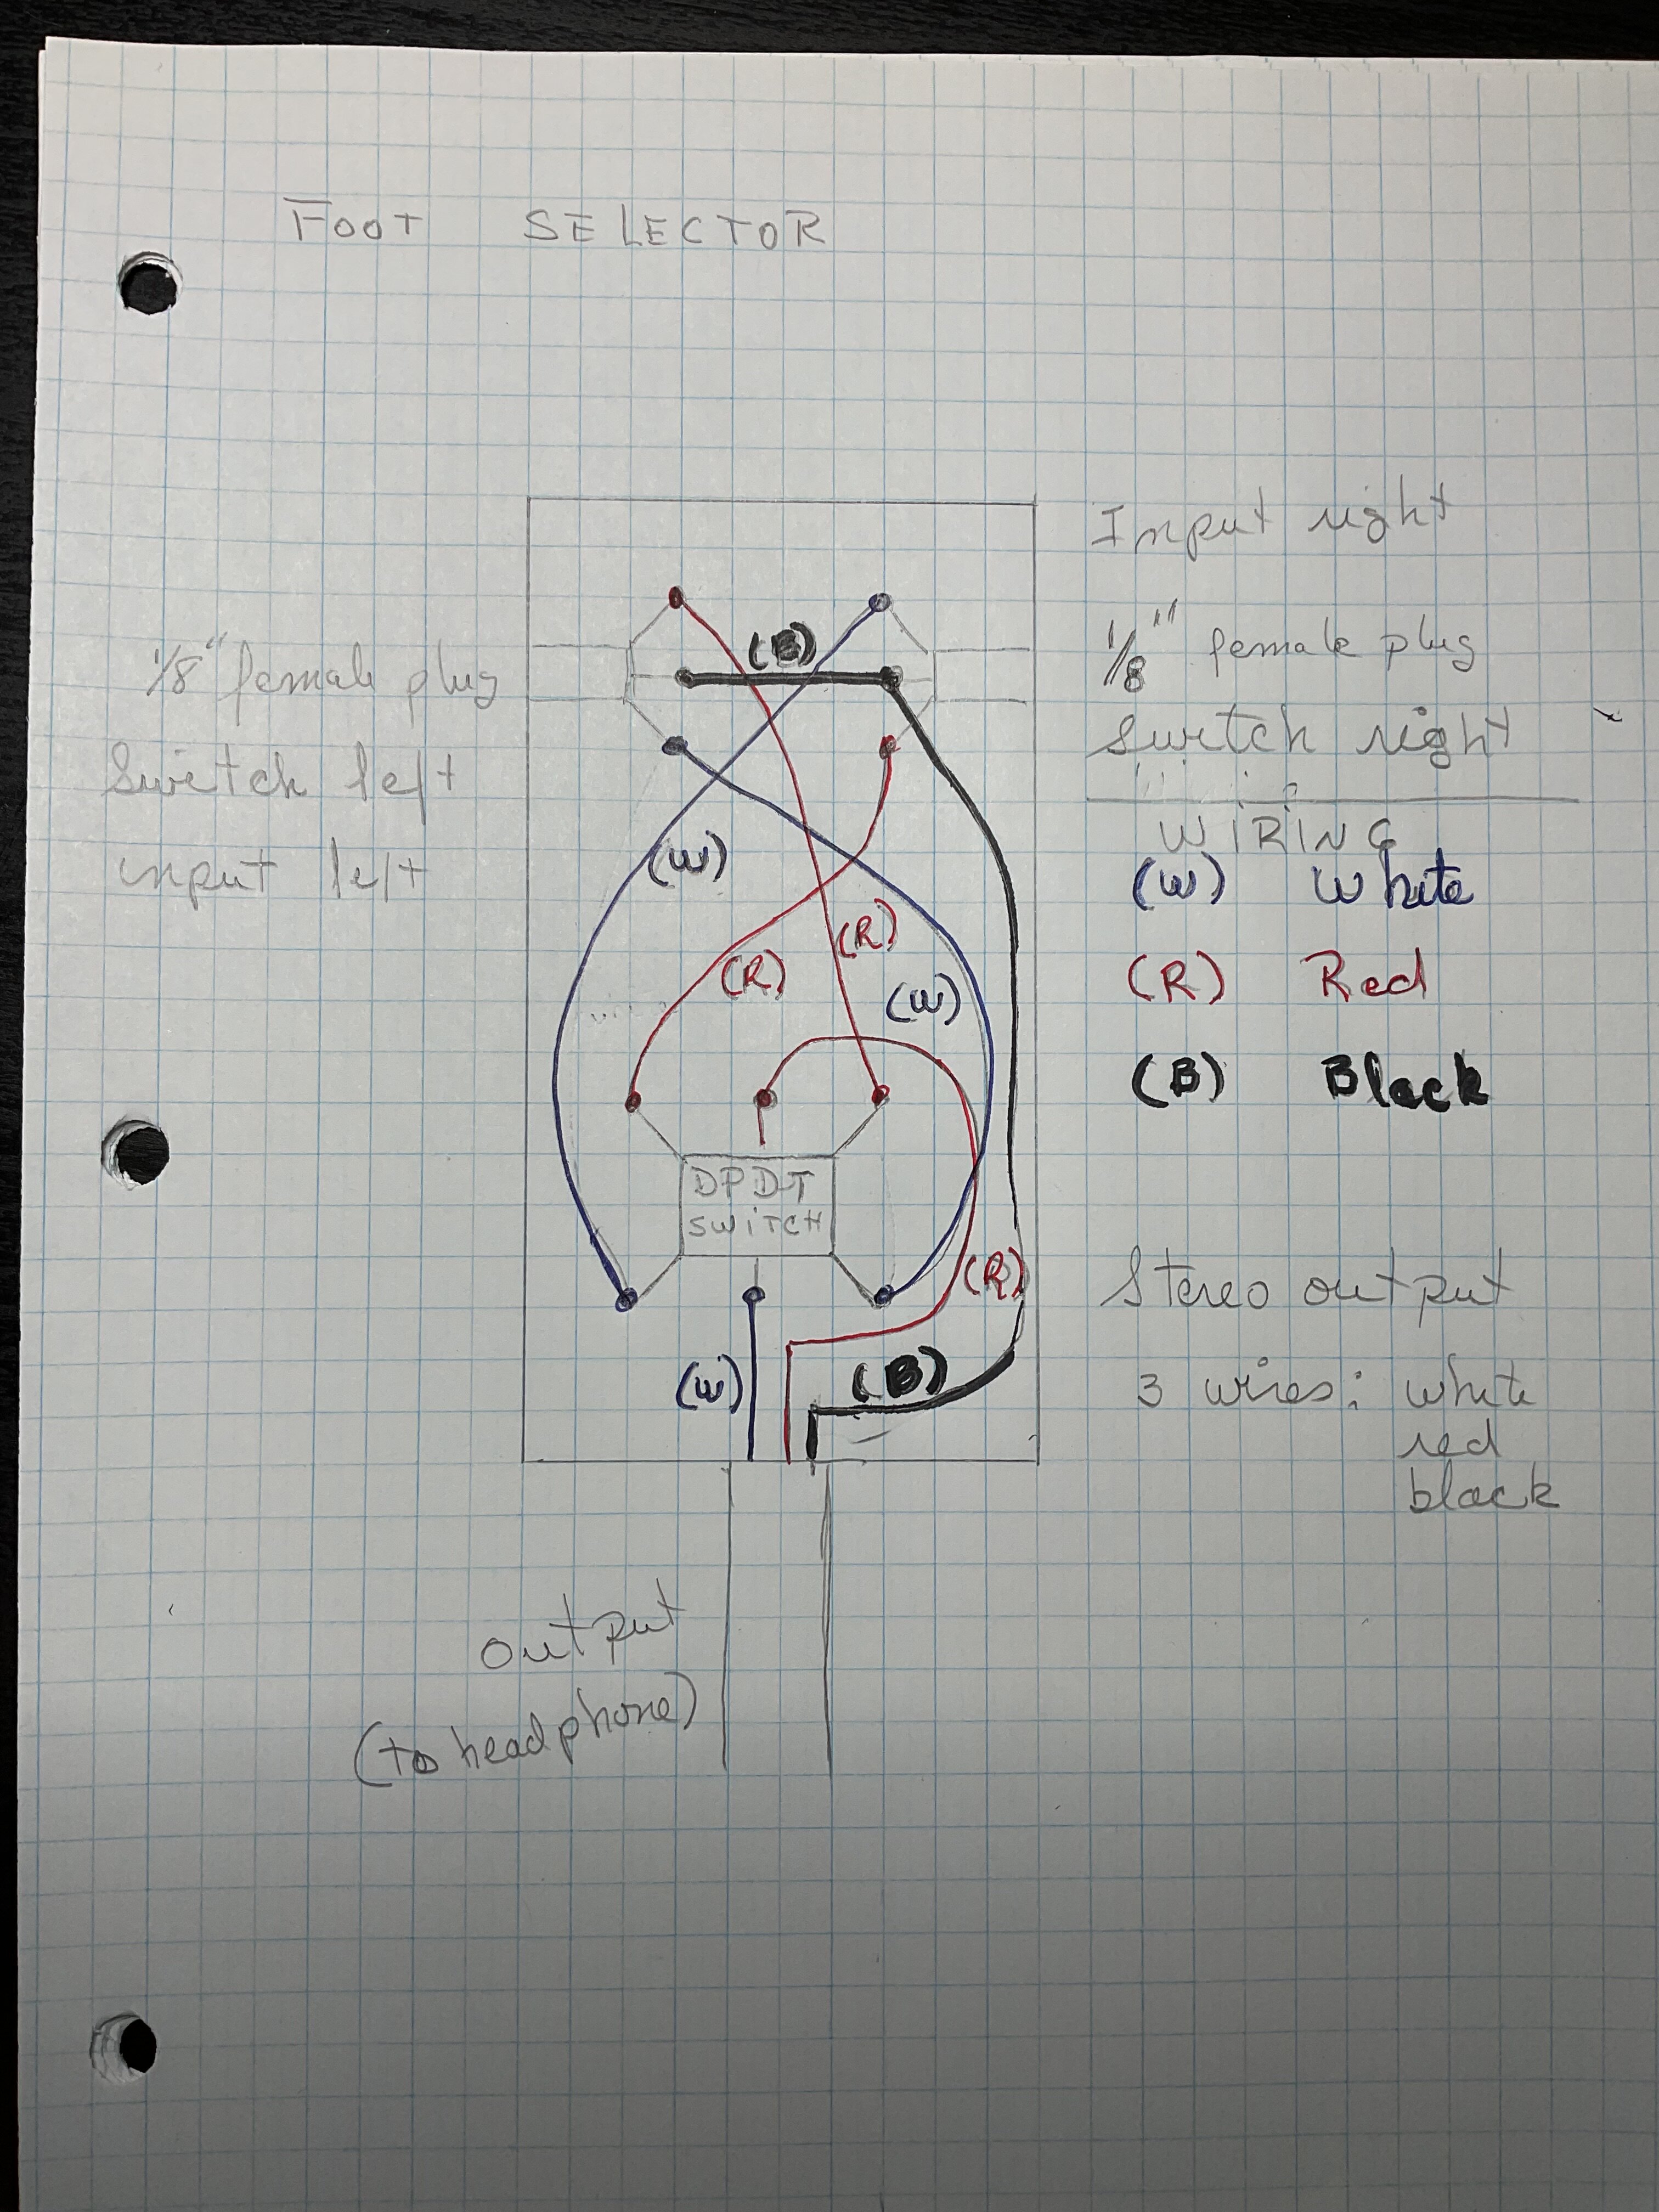 FOOT SELECTOR
Input right
1/8" female plug
switch right
1/8" female plug
switch left
input left
WIRING
(W) White
(R) Red
(B) Black
(B)
(W)
(R)
(R)
(W)
DPDT
SWITCH
(R)
(B)
(W)
Stereo output
3 wires: white
red
black
output
(to headphone)